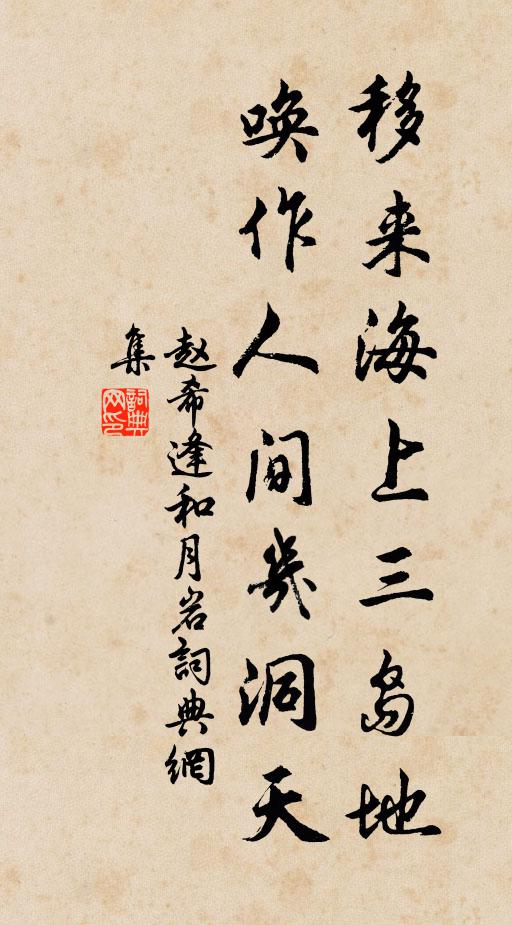 移来海上三岛地
唤作人间几洞天
赵希逢和月岩詞典網
集
詞典
网印